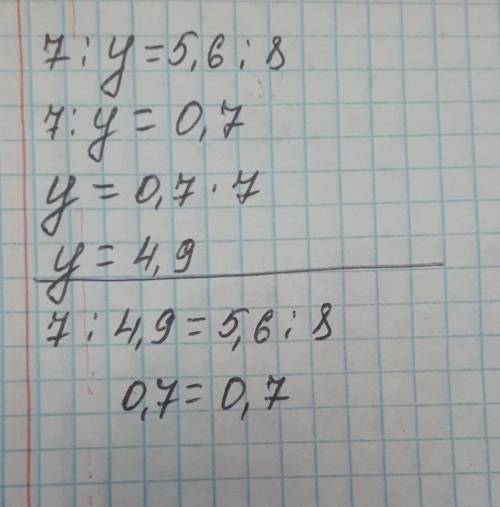 7 : y = 5,6 : 8
7 : y = 0,7
y = 0,7 · 7
y = 4,9
7 : 4,9 = 5,6 : 8
0,7 = 0,7